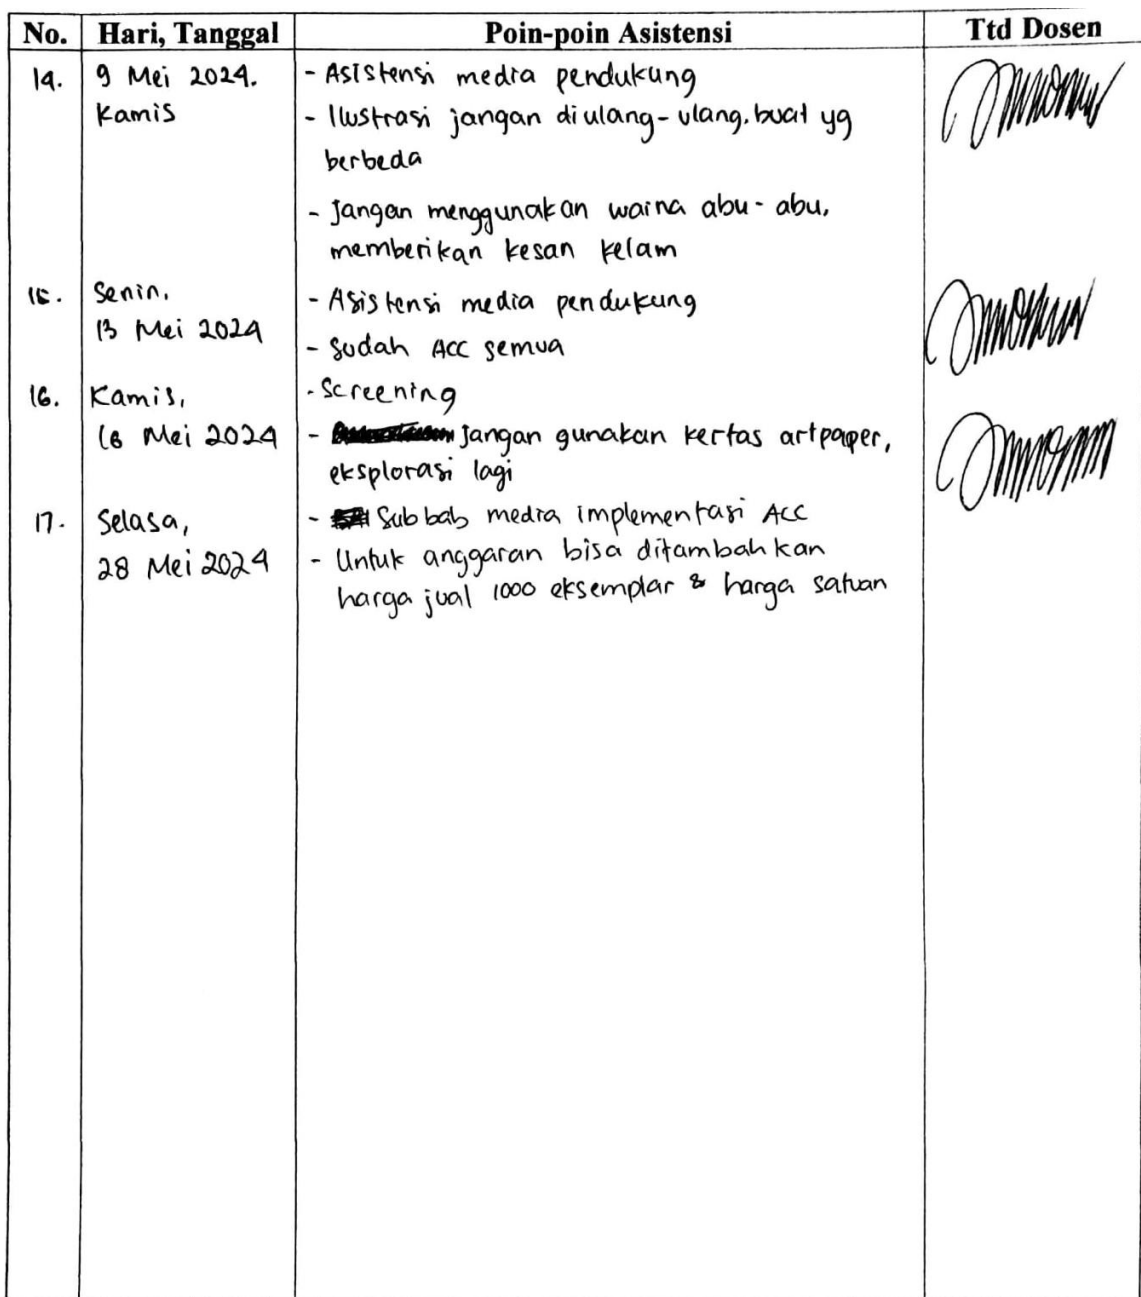 No. Hari, Tanggal Poin-poin Asistensi Ttd Dosen
14. 9 Mei 2024. - Asistensi media pendukung
Kamis - Ilustrasi jangan diulang-ulang. buat yg
berbeda
- Jangan menggunakan warna abu-abu,
memberikan kesan kelam
15. Senin, - Asistensi media pendukung
13 Mei 2024 - Sudah ACC semua
16. Kamis, - Screening
16 Mei 2024 - Jangan gunakan kertas artpaper,
eksplorasi lagi
17. Selasa, - Subbab media implementasi ACC
28 Mei 2024 - Untuk anggaran bisa ditambahkan
harga jual 1000 eksemplar & harga satuan